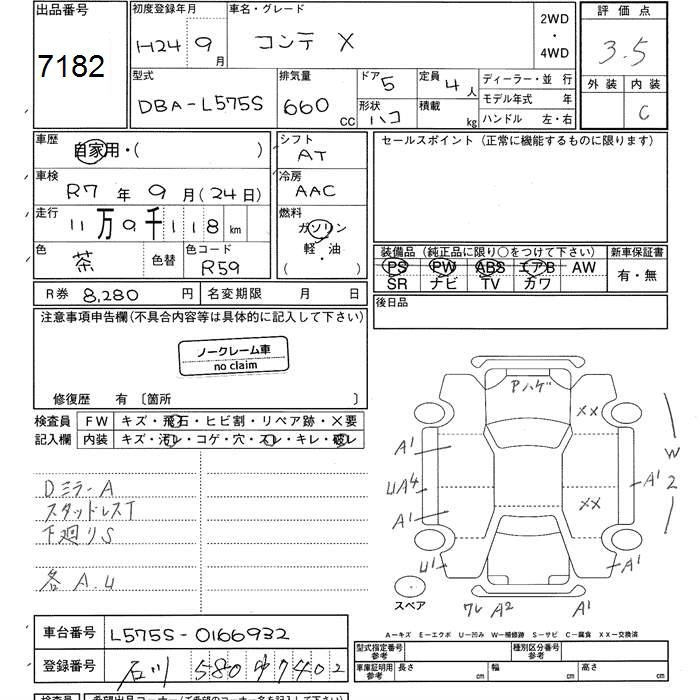 出品番号
7182
初度登録年月
H24 9月
車名・グレード
コンテ X
2WD
・
4WD
評価点
3.5
外装 内装
C
型式
DBA-L575S
排気量
660 CC
ドア 5
形状 ハコ
定員 4人
積載 kg
ディーラー・並行
モデル年式 年
ハンドル 左・右
車歴
自家用・( )
シフト
AT
セールスポイント(正常に機能するものに限ります)
車検
R7年 9月(24日)
冷房
AAC
走行
11万9千118km
燃料
ガソリン
軽・油
( ・ )
色
茶
色替
色コード
R59
装備品(純正品に限り○をつけて下さい)
PS PW ABS エアB AW
SR ナビ TV カワ
新車保証書
有・無
R券 8,280円
名変期限 月 日
後日品
注意事項申告欄(不具合内容等は具体的に記入して下さい)
ノークレーム車
no claim
修復歴 有 〔箇所 〕
検査員 FW キズ・飛石・ヒビ割・リペア跡・X要
記入欄 内装 キズ・汚レ・コゲ・穴・スレ・キレ・破レ
DミラーA
スタッドレスT
下廻りS
各A.U
Pハゲ
XX
A1
UA4
A1
XX
A1
W
2
U1
A1
スペア
ワレ A2
A1
A-キズ E-エクボ U-凹み W-補修跡 S-サビ C-腐食 XX-交換済
車台番号 L575S-0166932
登録番号 石川 580 ゆ 7402
型式指定番号
参考
種別区分番号
参考
車庫証明用
参考
長さ cm
幅 cm
高さ cm
検査員
希望出品コーナー(ご希望のコーナー名を記入して下さい)